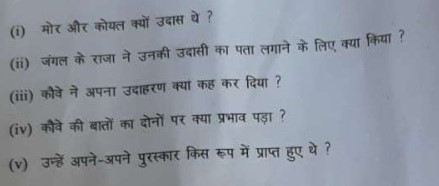 (i) मोर और कोयल क्यों उदास थे ?
(ii) जंगल के राजा ने उनकी उदासी का पता लगाने के लिए क्या किया ?
(iii) कौवे ने अपना उदाहरण क्या कह कर दिया ?
(iv) कौवे की बातों का दोनों पर क्या प्रभाव पड़ा ?
(v) उन्हें अपने-अपने पुरस्कार किस रूप में प्राप्त हुए थे ?